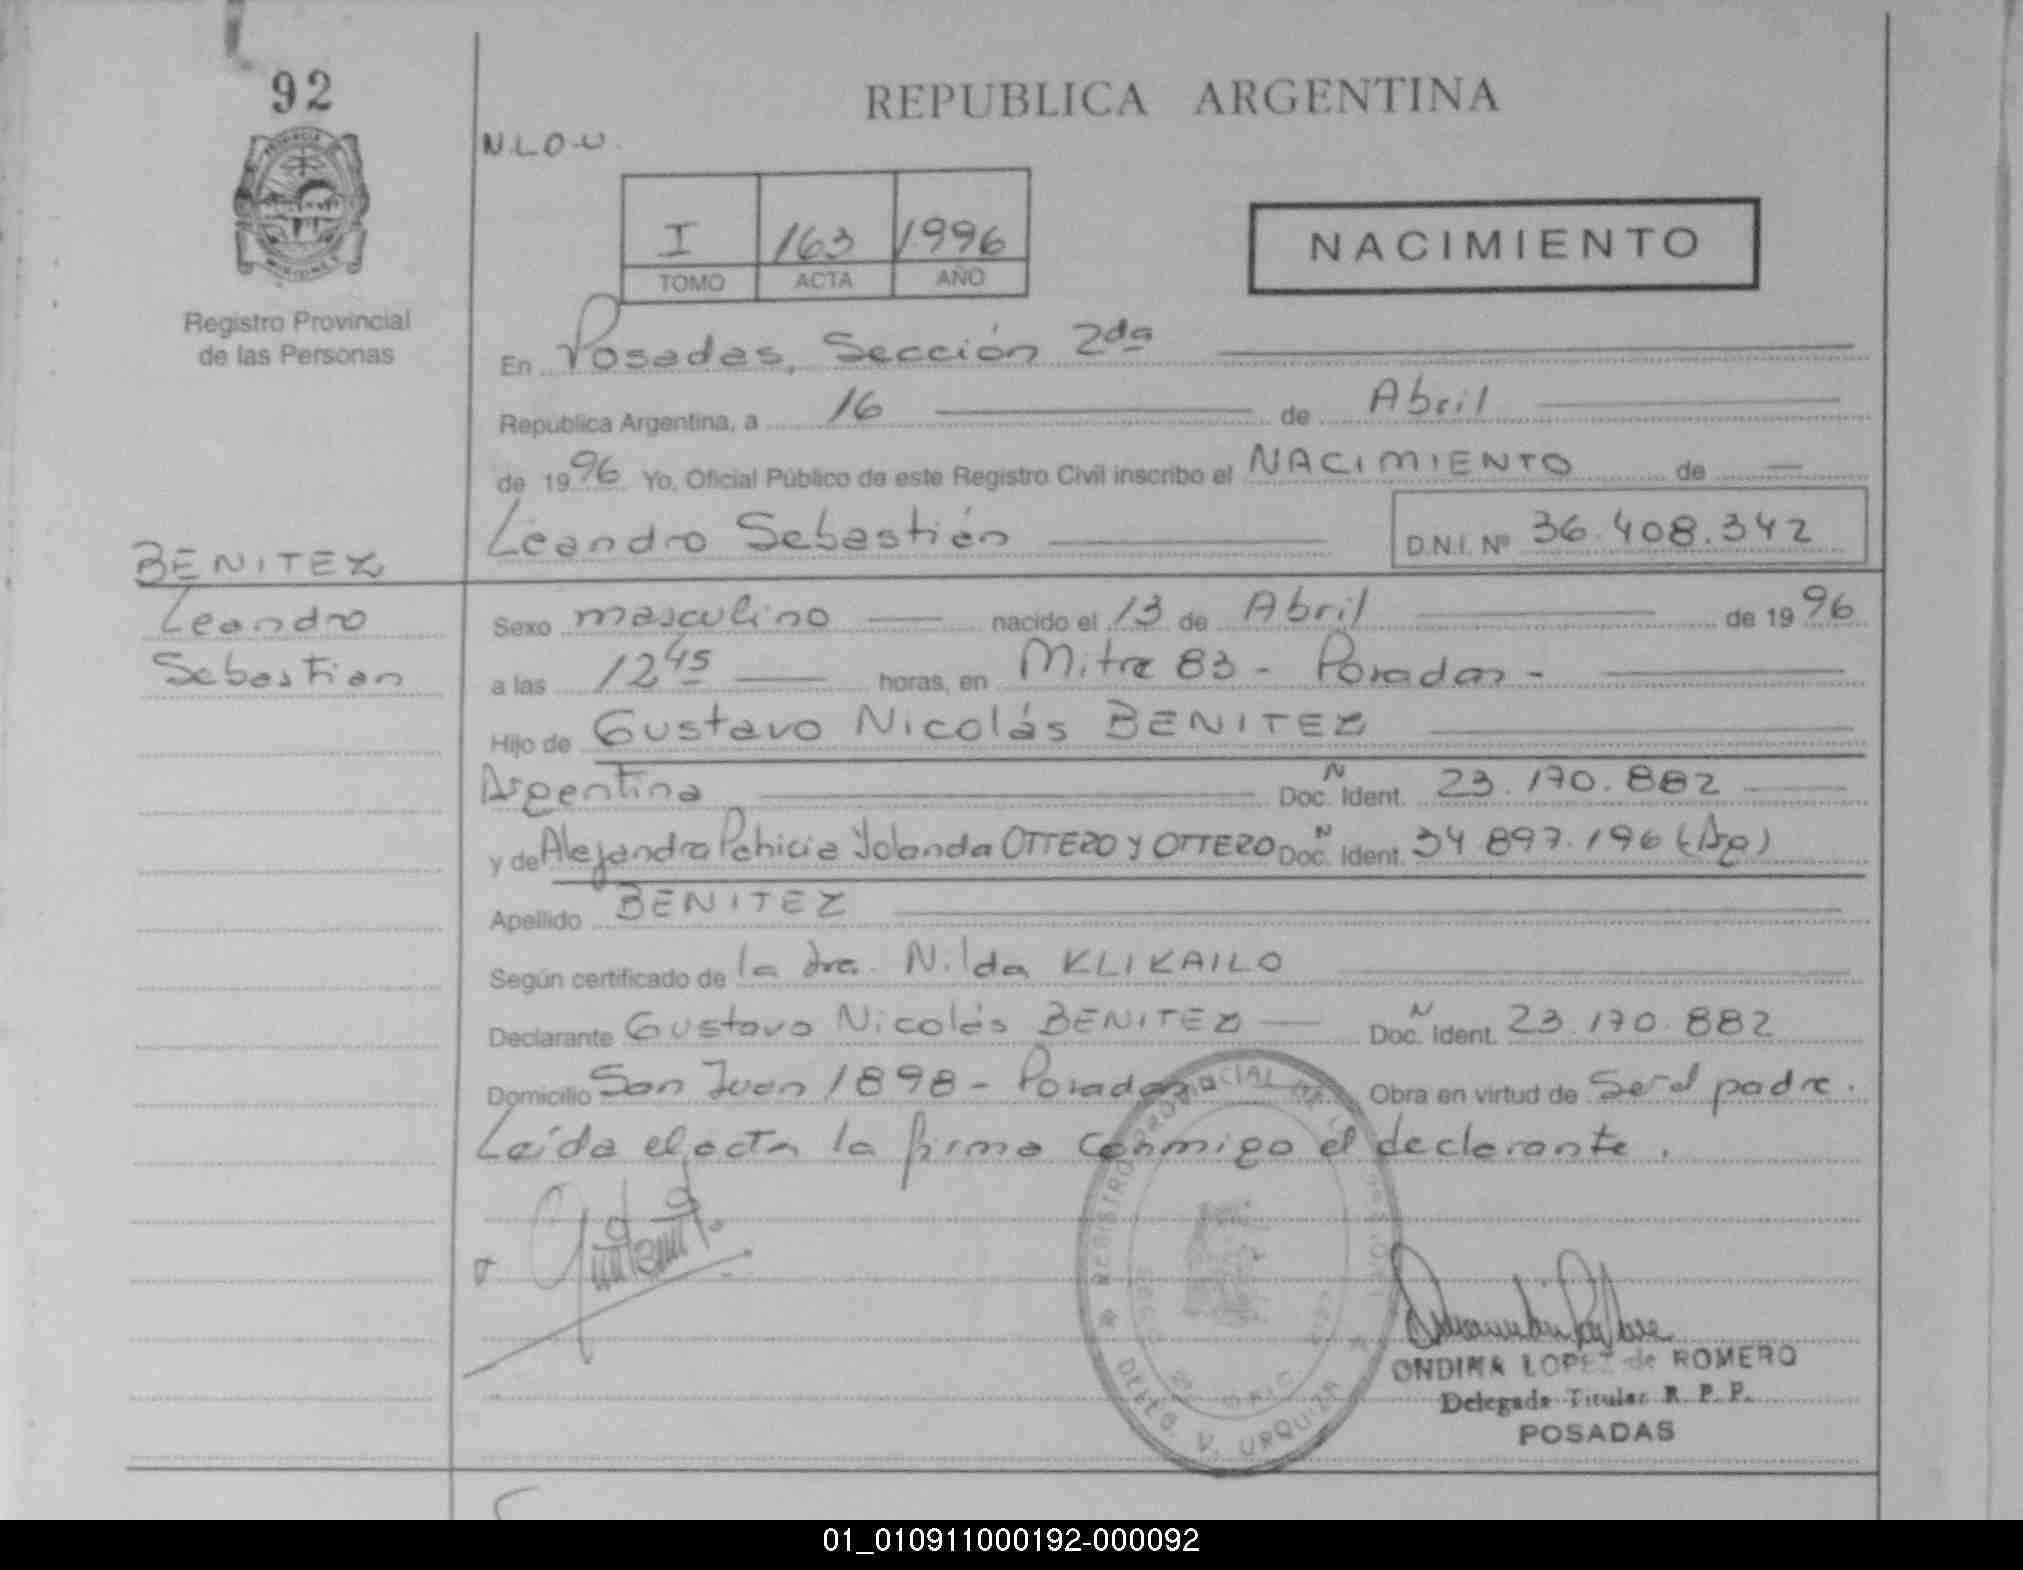 92
REPUBLICA ARGENTINA
N.L.O.U.
I 163 1996
TOMO ACTA AÑO
NACIMIENTO
Registro Provincial
de las Personas
En Posadas, Sección 2da
Republica Argentina, a 16 de Abril
de 1996 Yo, Oficial Público de este Registro Civil inscribo el NACIMIENTO de
Leandro Sebastián D.N.I. Nº 36.408.342
BENITEZ
Leandro
Sebastian
Sexo masculino nacido el 13 de Abril de 1996
a las 12 45 horas, en Mitre 83 - Posadas -
Hijo de Gustavo Nicolás BENITEZ
Argentina Doc. Ident. N 23.170.882
y de Alejandra Patricia Yolanda OTTERO Y OTTERO Doc. Ident. N 34.897.196 (Ag)
Apellido BENITEZ
Según certificado de la dra. Nilda KLIKAILO
Declarante Gustavo Nicolás BENITEZ Doc. Ident. N 23.170.882
Domicilio San Juan 1898 - Posadas Obra en virtud de Ser el padre.
Leída el acta la firma conmigo el declarante.
REGISTRO PROVINCIAL DE LAS PERSONAS
DELEG. V. URQUIZA
ONDINA LOPEZ de ROMERO
Delegada Titular R. P. P.
POSADAS
01_010911000192-000092